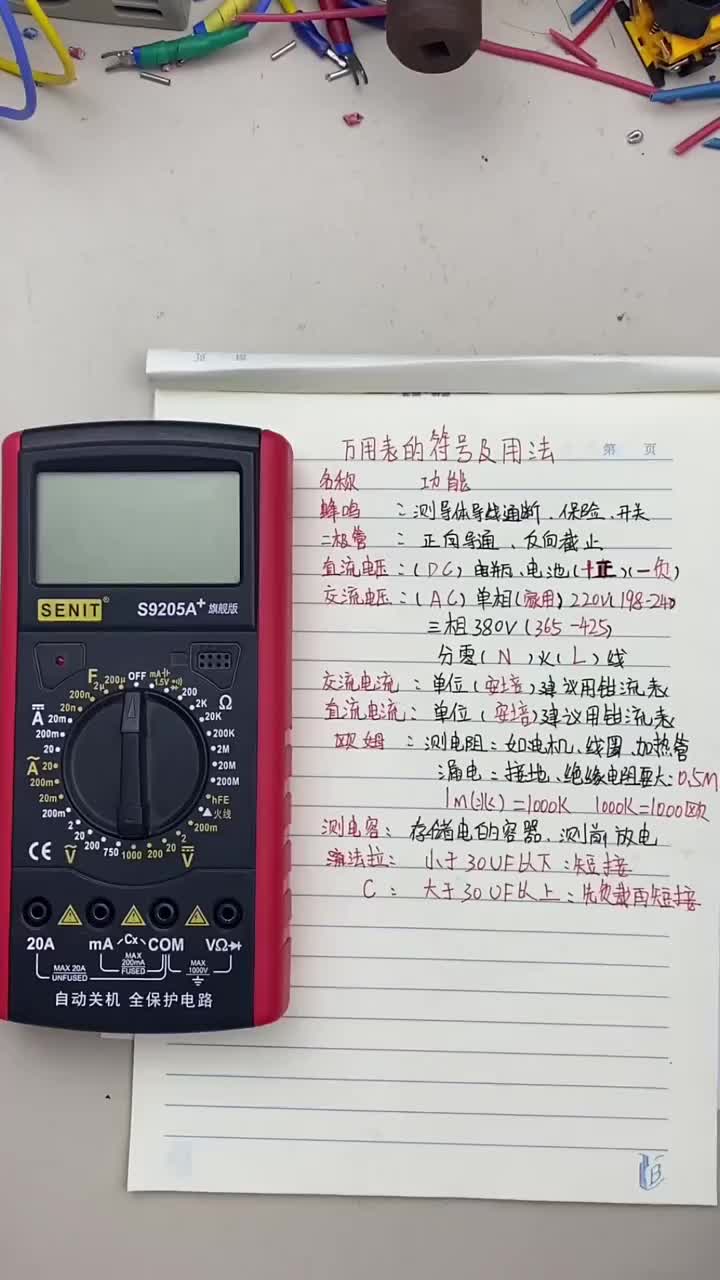 万用表的符号及用法
第 页
名称 功能
蜂鸣 : 测导体导线通断、保险、开关
二极管 : 正向导通、反向截止
直流电压:(DC)电瓶、电池(十正)(一负)
交流电压:(AC)单相(家用)220V(198-240)
三相380V(365-425)
分零(N)火(L)线
交流电流:单位(安培)建议用钳流表
直流电流:单位(安培)建议用钳流表
欧姆 :测电阻:如电机、线圈、加热管
漏电:接地、绝缘电阻要大:0.5M
1M(兆)=1000K 1000K=1000欧
测电容: 存储电的容器、测前放电
法拉: 小于30UF以下:短接
C : 大于30UF以上:先负载再短接
SENIT S9205A+ 旗舰版
F 200μ OFF mA 1.5V
2μ 200 Ω
200n 2K
20n 20K
A 20m 200K
200m 2M
A 20 20M
200m 200M
20m hFE
200m 火线
2 200m
20 2
200 20
V 750 1000 200 V
CE
20A mA Cx COM VΩ
MAX 20A UNFUSED
MAX 200mA FUSED
MAX 1000V
自动关机 全保护电路